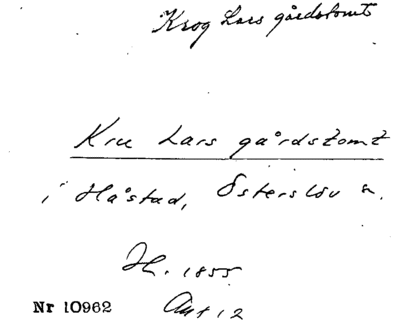 Krog Lars gårdstomt
Kru Lars gårdstomt
i Håstad, Österslöv s.
H. 1855
Nr 10962